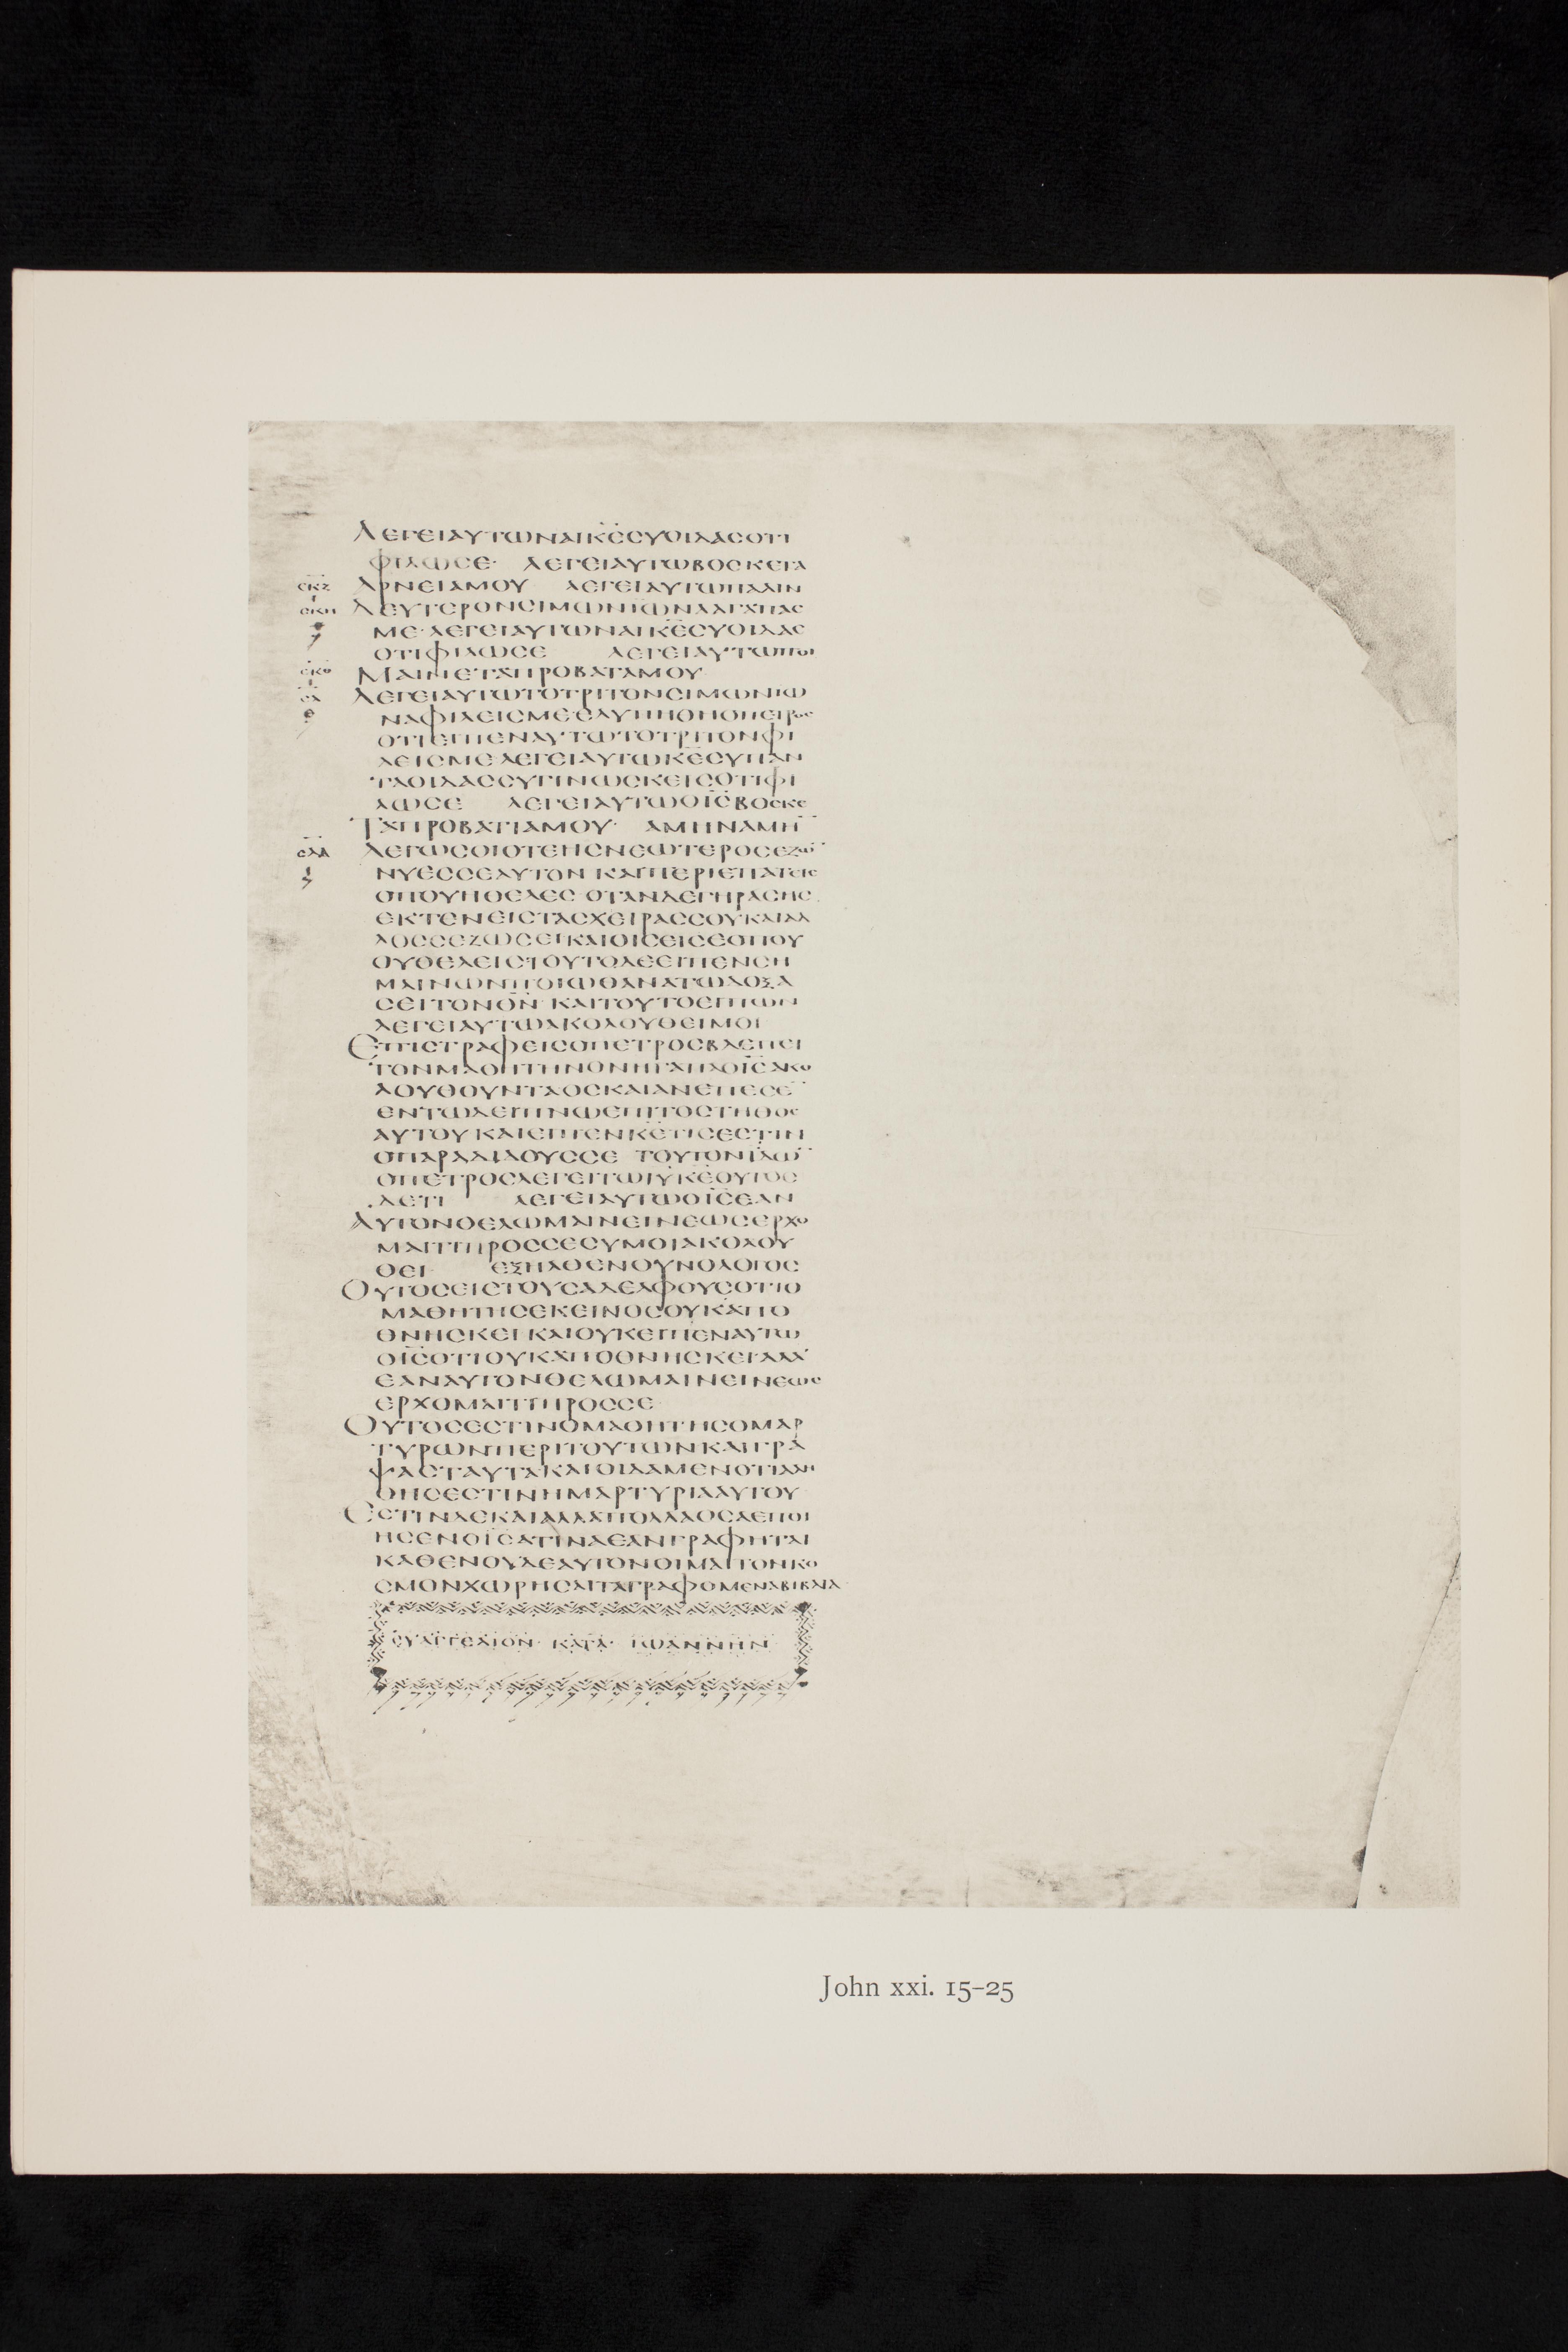 ΛΕΓΕΙΑΥΤΩΝΑΙΚ̅Ε̅ϹΥΟΙΔΑϹΟΤΙ
ΦΙΛΩϹΕ· ΛΕΓΕΙΑΥΤΩΒΟϹΚΕΤΑ
ϹΚΖ ΑΡΝΕΙΑΜΟΥ ΛΕΓΕΙΑΥΤΩΠΑΛΙΝ
ϹΚΗ ΔΕΥΤΕΡΟΝϹΙΜΩΝΪΩΝΑΑΓΑΠΑϹ
ΜΕ·ΛΕΓΕΙΑΥΤΩΝΑΙΚ̅Ε̅ϹΥΟΙΔΑϹ
ΟΤΙΦΙΛΩϹΕ ΛΕΓΕΙΑΥΤΩΠΟΙ
ϹΚΘ ΜΑΙΝΕΤΑΠΡΟΒΑΤΑΜΟΥ
ϹΛ ΛΕΓΕΙΑΥΤΩΤΟΤΡΙΤΟΝϹΙΜΩΝΙΩ
ΝΑΦΙΛΕΙϹΜΕΕΛΥΠΗΘΗΟΠΕΤΡΟϹ
ΟΤΙΕΙΠΕΝΑΥΤΩΤΟΤΡΙΤΟΝΦΙ
ΛΕΙϹΜΕΛΕΓΕΙΑΥΤΩΚ̅Ε̅ϹΥΠΑΝ
ΤΑΟΙΔΑϹϹΥΓΙΝΩϹΚΕΙϹΟΤΙΦΙ
ΛΩϹΕ ΛΕΓΕΙΑΥΤΩΟΙ̅Ϲ̅ΒΟϹΚΕ
ΤΑΠΡΟΒΑΤΙΑΜΟΥ· ΑΜΗΝΑΜΗ̅
ϹΛΑ ΛΕΓΩϹΟΙΟΤΕΗϹΝΕΩΤΕΡΟϹΕΖΩ̅
ΝΥΕϹϹΕΑΥΤΟΝΚΑΙΠΕΡΙΕΠΑΤΕΙϹ
ΟΠΟΥΗΘΕΛΕϹ·ΟΤΑΝΔΕΓΗΡΑϹΗϹ
ΕΚΤΕΝΕΙϹΤΑϹΧΕΙΡΑϹϹΟΥΚΑΙΑΛ
ΛΟϹϹΕΖΩϹΕΙΚΑΙΟΙϹΕΙϹΕΟΠΟΥ
ΟΥΘΕΛΕΙϹΤΟΥΤΟΔΕΕΙΠΕΝϹΗ
ΜΑΙΝΩΝΠΟΙΩΘΑΝΑΤΩΔΟΞΑ
ϹΕΙΤΟΝΘ̅Ν̅·ΚΑΙΤΟΥΤΟΕΙΠΩΝ
ΛΕΓΕΙΑΥΤΩΑΚΟΛΟΥΘΕΙΜΟΙ
ΕΠΙϹΤΡΑΦΕΙϹΟΠΕΤΡΟϹΒΛΕΠΕΙ
ΤΟΝΜΑΘΗΤΗΝΟΝΗΓΑΠΑΟΙ̅Ϲ̅ΑΚΟ
ΛΟΥΘΟΥΝΤΑΟϹΚΑΙΑΝΕΠΕϹΕ̅
ΕΝΤΩΔΕΙΠΝΩΕΠΙΤΟϹΤΗΘΟϹ
ΑΥΤΟΥΚΑΙΕΙΠΕΝΚ̅Ε̅ΤΙϹΕϹΤΙΝ
ΟΠΑΡΑΔΙΔΟΥϹϹΕ ΤΟΥΤΟΝΪΔΩ̅
ΟΠΕΤΡΟϹΛΕΓΕΙΤΩΙ̅Υ̅Κ̅Ε̅ΟΥΤΟϹ
ΔΕΤΙ ΛΕΓΕΙΑΥΤΩΟΙ̅Ϲ̅ΕΑΝ
ΑΥΤΟΝΘΕΛΩΜΑΙΝΕΙΝΕΩϹΕΡΧΟ
ΜΑΙΤΙΠΡΟϹϹΕϹΥΜΟΙΑΚΟΛΟΥ
ΘΕΙ· ΕΞΗΛΘΕΝΟΥΝΟΛΟΓΟϹ
ΟΥΤΟϹΕΙϹΤΟΥϹΑΔΕΛΦΟΥϹΟΤΙΟ
ΜΑΘΗΤΗϹΕΚΕΙΝΟϹΟΥΚΑΠΟ
ΘΝΗϹΚΕΙ·ΚΑΙΟΥΚΕΙΠΕΝΑΥΤΩ
ΟΙ̅Ϲ̅ΟΤΙΟΥΚΑΠΟΘΝΗϹΚΕΙΑΛΛ
ΕΑΝΑΥΤΟΝΘΕΛΩΜΑΙΝΕΙΝΕΩϹ
ΕΡΧΟΜΑΙΤΙΠΡΟϹϹΕ
ΟΥΤΟϹΕϹΤΙΝΟΜΑΘΗΤΗϹΟΜΑΡ
ΤΥΡΩΝΠΕΡΙΤΟΥΤΩΝΚΑΙΓΡΑ
ΨΑϹΤΑΥΤΑΚΑΙΟΙΔΑΜΕΝΟΤΙΑΛΗ
ΘΗϹΕϹΤΙΝΗΜΑΡΤΥΡΙΑΑΥΤΟΥ
ΕϹΤΙΝΔΕΚΑΙΑΛΛΑΠΟΛΛΑΟϹΑΕΠΟΙ
ΗϹΕΝΟΙ̅Ϲ̅ΑΤΙΝΑΕΑΝΓΡΑΦΗΤΑΙ
ΚΑΘΕΝΟΥΔΕΑΥΤΟΝΟΙΜΑΙΤΟΝΚΟ
ϹΜΟΝΧΩΡΗϹΑΙΤΑΓΡΑΦΟΜΕΝΑΒΙΒΛΙΑ
ΕΥΑΓΓΕΛΙΟΝ· ΚΑΤΑ· ΙΩΑΝΝΗΝ
John xxi. 15–25